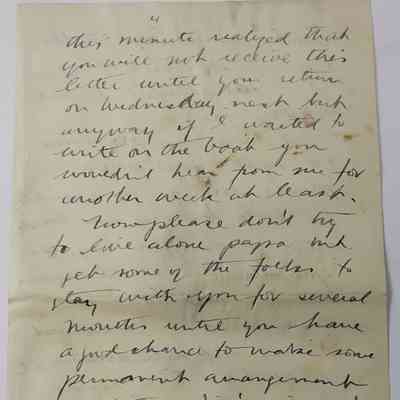 "
this minute realized that
you will not receive this
letter until you return
on Wednesday next but
anyway if I waited to
write on the boat you
wouldn't hear from me for
another week at least.
Now please don't try
to live alone papa but
get some of the folks to
stay with you for several
months until you have
a good chance to make some
permanent arrangement